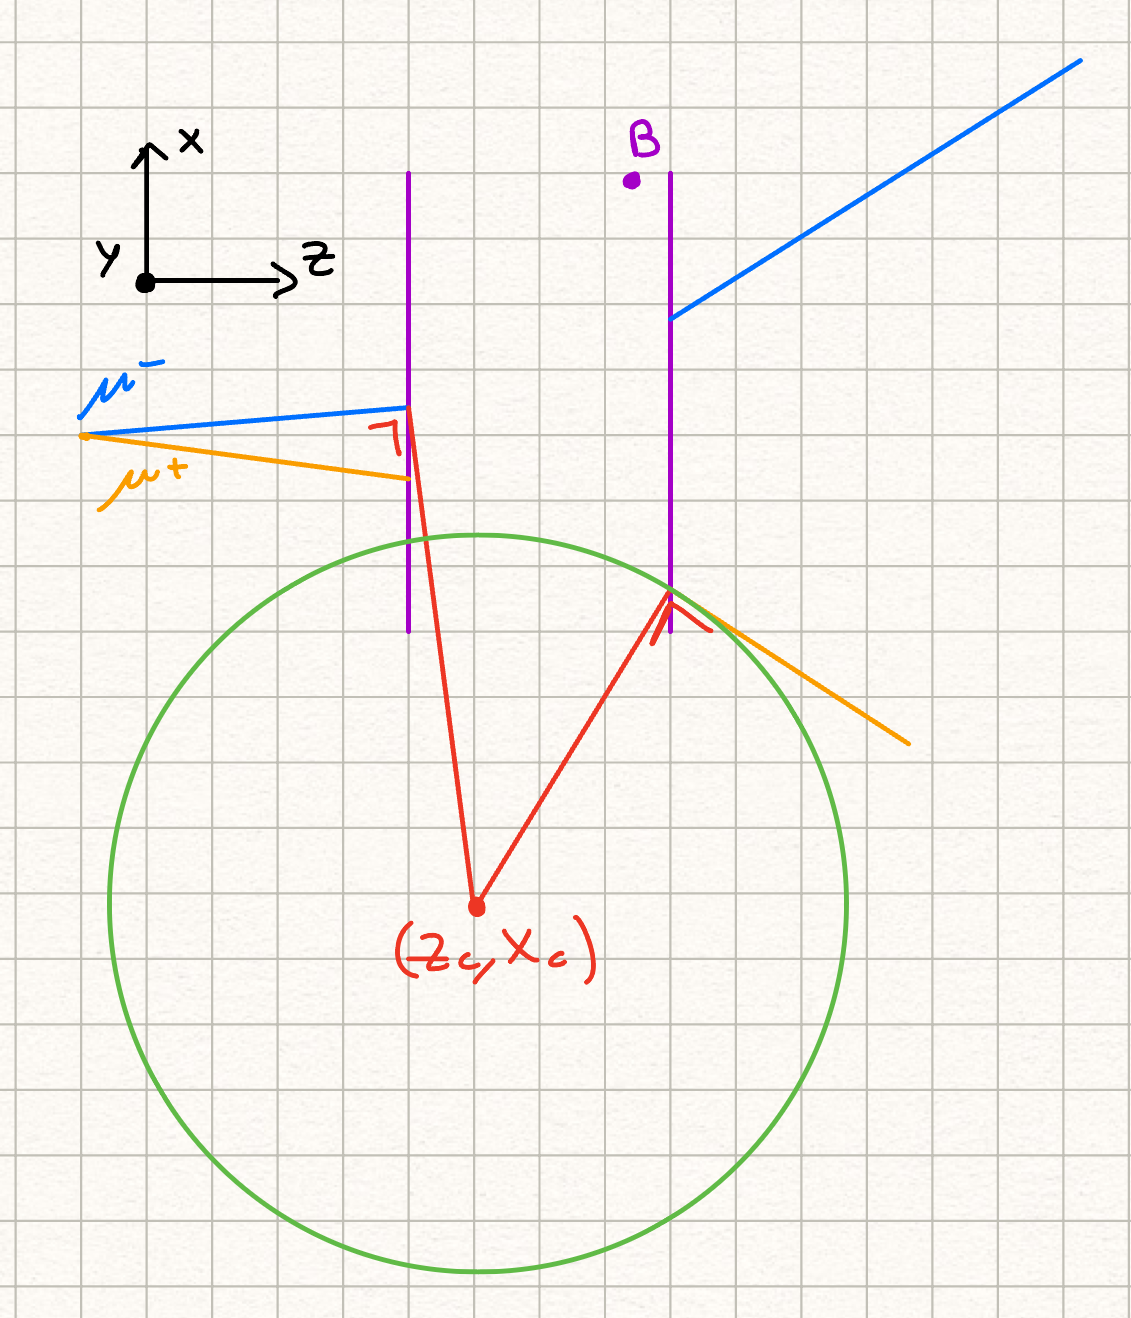 x
B
y
z
μ-
μ+
(zc, xc)